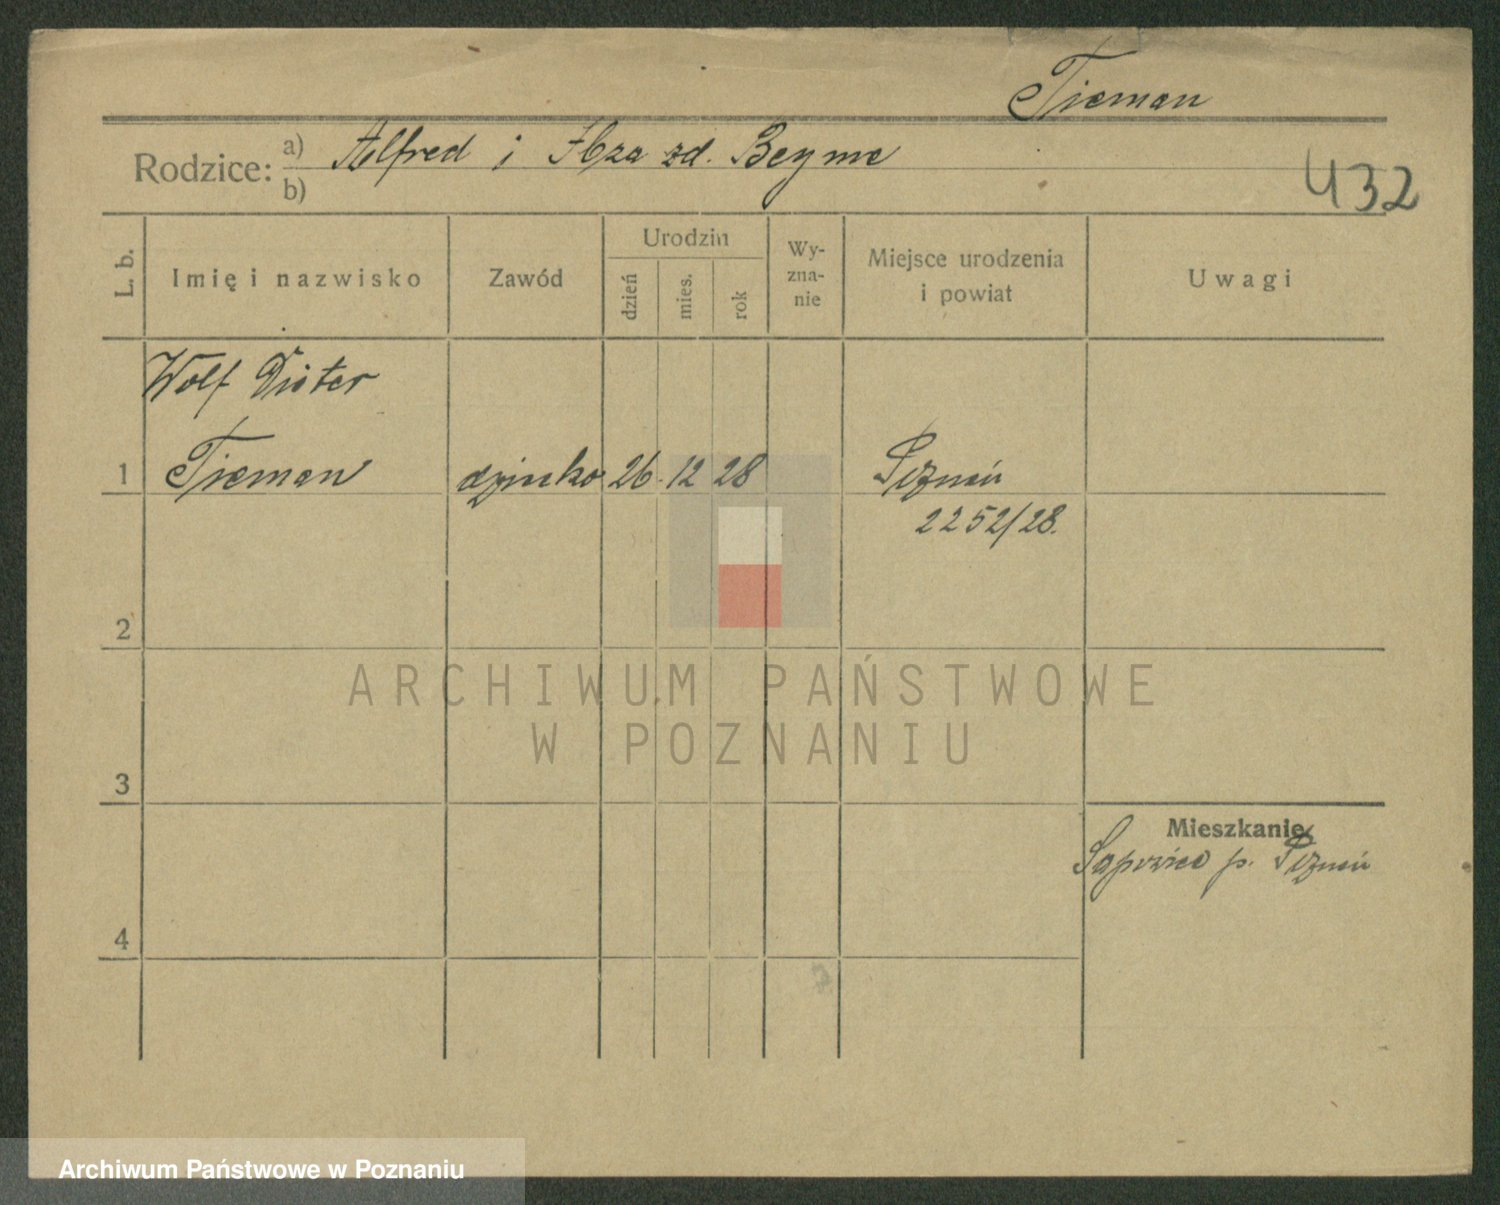 Tieman
Rodzice: a) Alfred i Ilza zd. Beyme
b)
432
L. b.
Imię i nazwisko
Zawód
Urodzin
dzień
mies.
rok
Wy-
zna-
nie
Miejsce urodzenia
i powiat
Uwagi
Wolf Dieter
1 Tieman dziecko 26. 12 28 Poznań
2252/28.
2
ARCHIWUM PAŃSTWOWE
W POZNANIU
3
Mieszkanie
p. Poznań
4
Archiwum Państwowe w Poznaniu